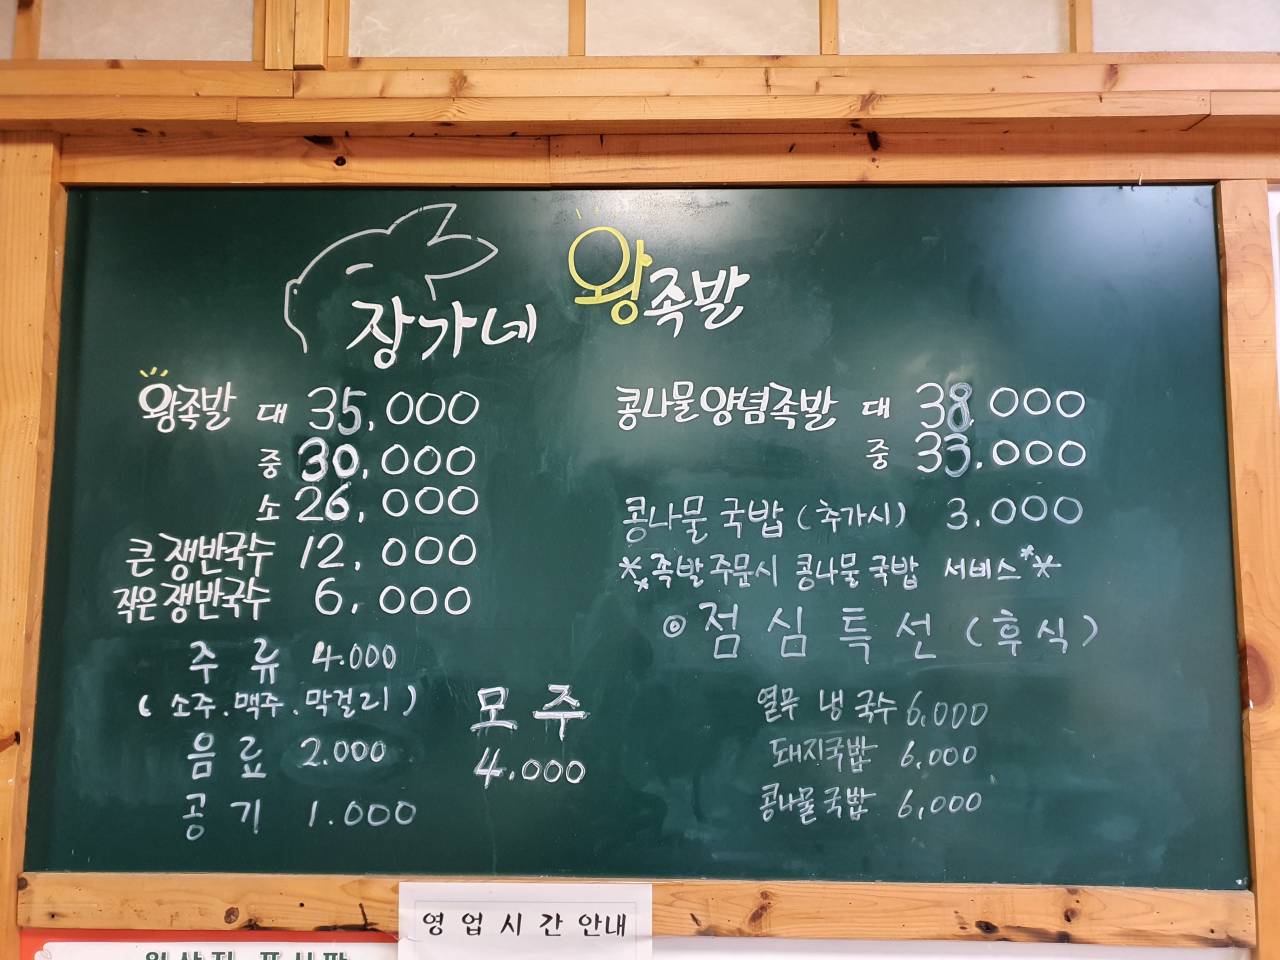 장가네 왕족발
왕족발 대 35,000
중 30,000
소 26,000
큰 쟁반국수 12,000
작은 쟁반국수 6,000
주류 4.000
(소주.맥주.막걸리)
음료 2.000
공기 1.000
모주
4.000
콩나물양념족발 대 38,000
중 33.000
콩나물국밥(추가시) 3.000
**족발주문시 콩나물국밥 서비스**
◎점심특선(후식)
열무 냉국수 6,000
돼지국밥 6,000
콩나물국밥 6,000
영업시간안내
원산지 표시판